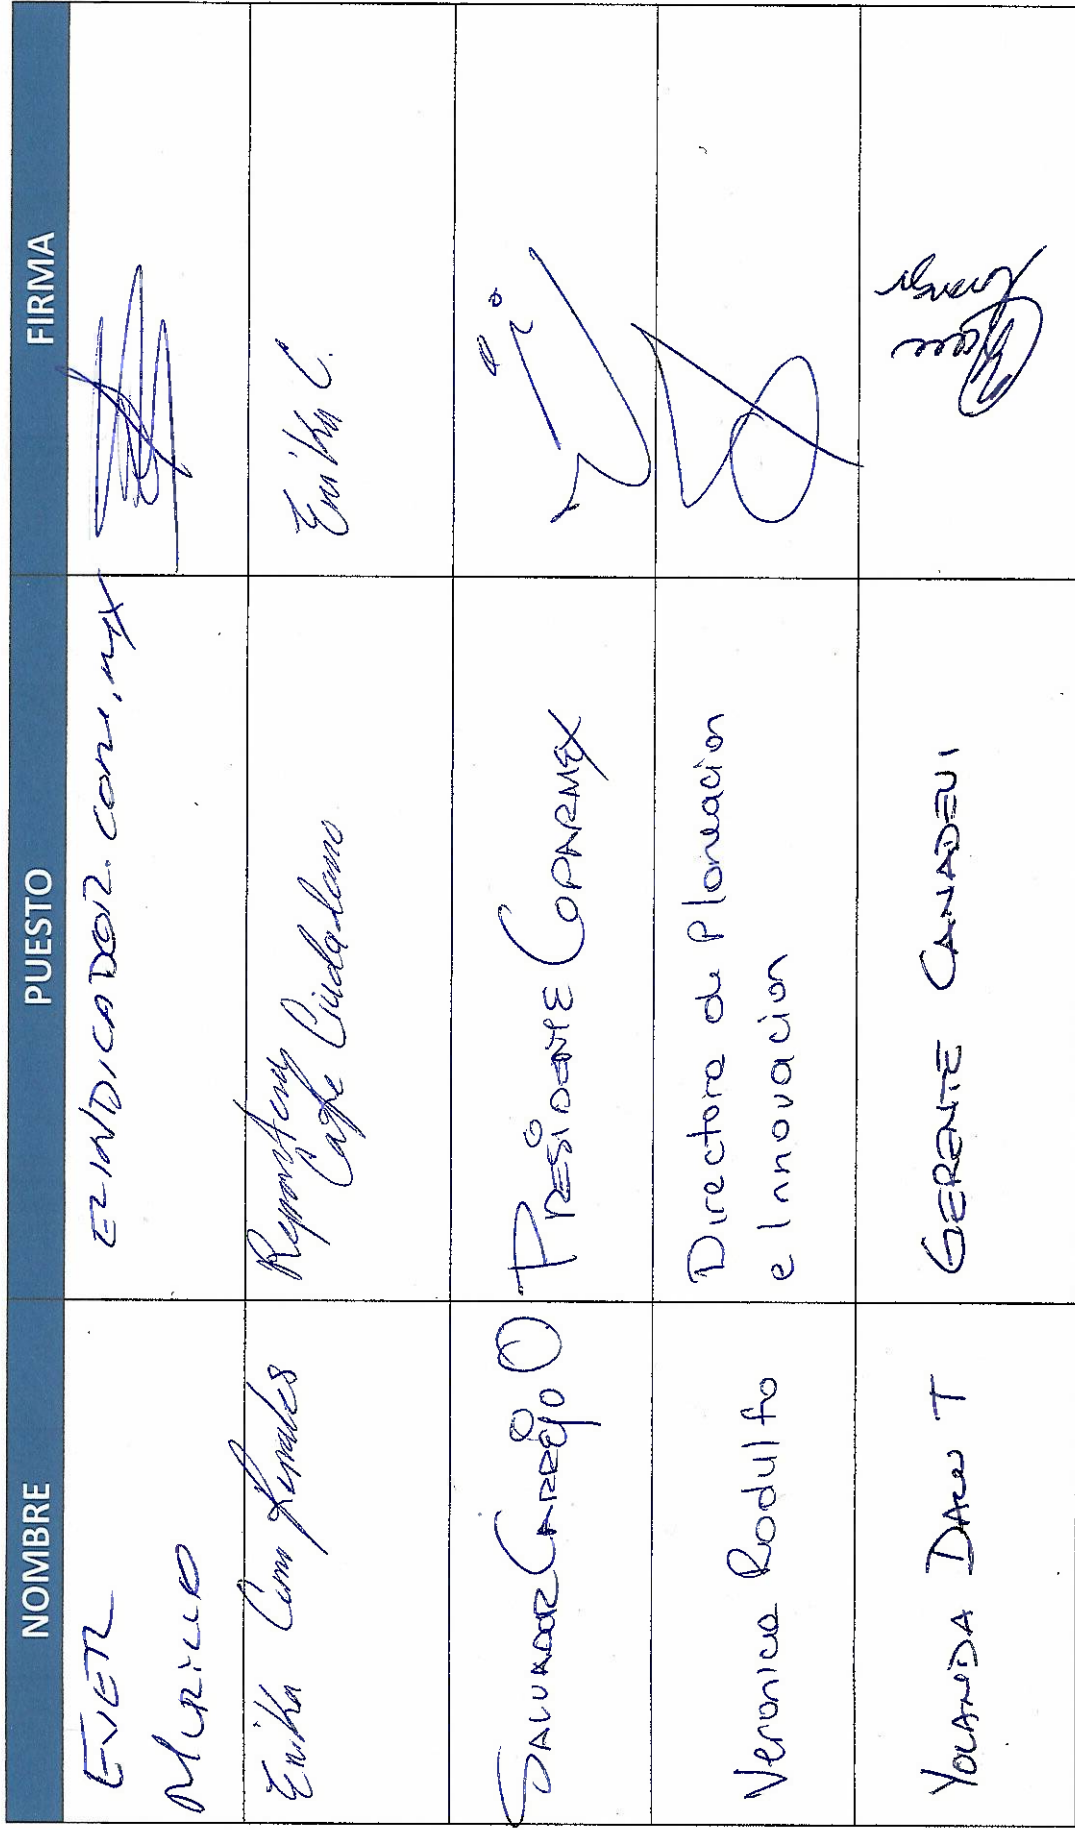 NOMBRE PUESTO FIRMA
EVER
MURILLO
ELINDICADOR.COM.MX
Erika
Reportera
Cafe Ciudadano
Erika C.
SALVADOR CARREJO O
PRESIDENTE COPARMEX
Veronica Rodulfo
Directora de Planeacion
e Innovacion
YOLANDA T
GERENTE CANADEVI